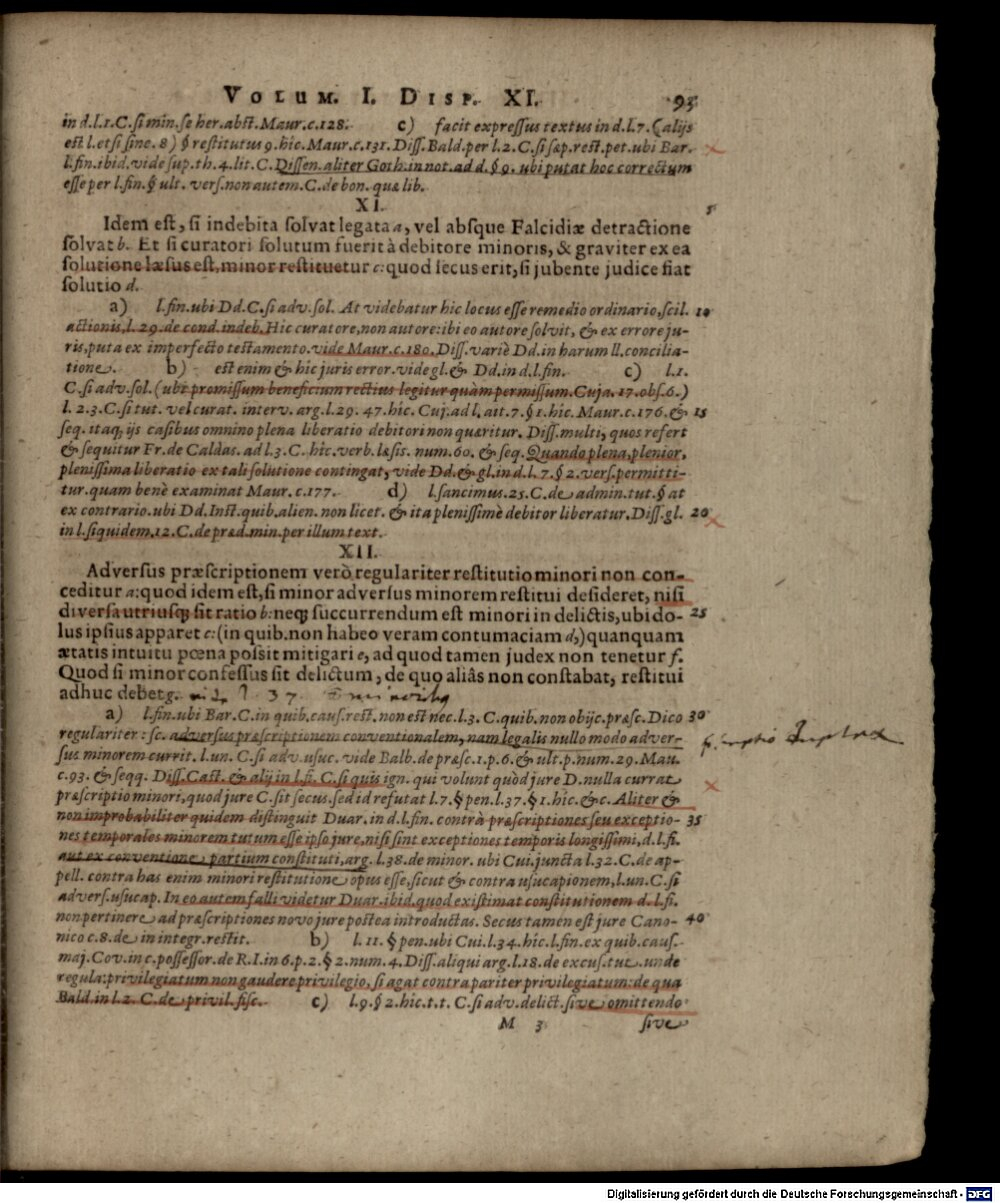 VOLUM. I. DISP. XI. 93
in d.l.1.C.si min.se her.abst.Maur.c.128. c) facit expressus textus in d.l.7.(alijs
est l.etsi sine.8) § restitutus 9.hic.Maur.c.131.Diss.Bald.per l.2.C.si sæp.rest.pet.ubi Bar.
l.fin.ibid.vide sup.th.4.lit.C.Dissen.aliter Goth.in not.ad d.§ 9. ubi putat hoc correctum
esse per l.fin.§ ult. vers.non autem.C.de bon. quæ lib.
XI. 5
Idem est, si indebita solvat legata a, vel absque Falcidiæ detractione
solvat b. Et si curatori solutum fuerit à debitore minoris, & graviter ex ea
solutione læsus est, minor restituetur c: quod secus erit, si jubente judice fiat
solutio d.
a) l.fin.ubi Dd.C.si adv.sol. At videbatur hic locus esse remedio ordinario,scil. 10
actionis,l.29.de cond.indeb.Hic curatore,non autore:ibi eo autore solvit, & ex errore ju-
ris,puta ex imperfecto testamento.vide Maur.c.180.Diss.variè Dd.in harum ll.concilia-
tione. b) est enim & hic juris error.vide gl.& Dd.in d.l.fin. c) l.1.
C.si adv.sol.(ubi promissum beneficium rectius legitur quàm permissum.Cuja.17.obs.6.)
l. 2.3.C.si tut. vel curat. interv. arg.l.29. 47.hic. Cuj.ad l. ait.7.§ 1.hic. Maur.c.176.& 15
seq. itaq, ijs casibus omnino plena liberatio debitori non quæritur. Diss.multi, quos refert
& sequitur Fr.de Caldas. ad l.3.C. hic.verb.læsis. num.60. & seq. Quando plena, plenior,
plenissima liberatio ex tali solutione contingat, vide Dd.& gl.in d.l. 7.§ 2.vers.permitti-
tur.quam benè examinat Maur. c.177. d) l.sancimus.25.C.de admin.tut.§ at
ex contrario.ubi Dd.Inst.quib.alien. non licet. & ita plenissimè debitor liberatur.Diss.gl. 20
in l.siquidem.12.C.de præd.min.per illum text.
XII.
Adversus præscriptionem verò regulariter restitutio minori non con-
ceditur a: quod idem est, si minor adversus minorem restitui desideret, nisi
diversa utriusq; sit ratio b: neq; succurrendum est minori in delictis, ubi do- 25
lus ipsius apparet c: (in quib. non habeo veram contumaciam d,) quanquam
ætatis intuitu pœna possit mitigari e, ad quod tamen judex non tenetur f.
Quod si minor confessus sit delictum, de quo aliâs non constabat, restitui
adhuc debet g. l. 37.
a) l.fin.ubi Bar.C.in quib.caus.rest. non est nec.l.3. C.quib.non obijc.præsc.Dico 30
regulariter: sc. adversus præscriptionem conventionalem, nam legalis nullo modo adver-
sus minorem currit. l.un. C.si adv.usuc. vide Balb.de præsc.1.p.6.& ult.p.num.29. Mau.
c.93. & seqq. Diss.Cast.& alij in l.fi. C.si quis ign. qui volunt quòd jure D.nulla currat
præscriptio minori, quod jure C. sit secus.sed id refutat l.7.§ pen.l.37.§ 1.hic.&c. Aliter &
non improbabiliter quidem distinguit Duar. in d.l.fin. contrà præscriptiones seu exceptio- 35
nes temporales minorem tutum esse ipso jure,nisi sint exceptiones temporis longissimi,d.l.fi.
aut ex conventione partium constituti, arg. l.38.de minor. ubi Cui.juncta l.32.C.de ap-
pell. contra has enim minori restitutione opus esse,sicut & contra usucapionem,l.un.C.si
advers.usucap. In eo autem falli videtur Duar.ibid.quod existimat constitutionem d.l.fi.
non pertinere ad præscriptiones novo jure postea introductas. Secus tamen est jure Cano- 40
nico c.8.de in integr.restit. b) l.11.§ pen.ubi Cui.l.34.hic.l.fin.ex quib.caus.
maj.Cov.in c.possessor.de R.I.in 6.p.2.§ 2.num.4.Diss.aliqui arg.l.18.de excus.tut.unde
regula:privilegiatum non gaudere privilegio, si agat contra pariter privilegiatum:de qua
Bald.in l.2. C.de privil.fisc. c) l.9.§ 2.hic.t.t. C.si adv.delict.sive omittendo
M 3 sive
Digitalisierung gefördert durch die Deutsche Forschungsgemeinschaft - DFG